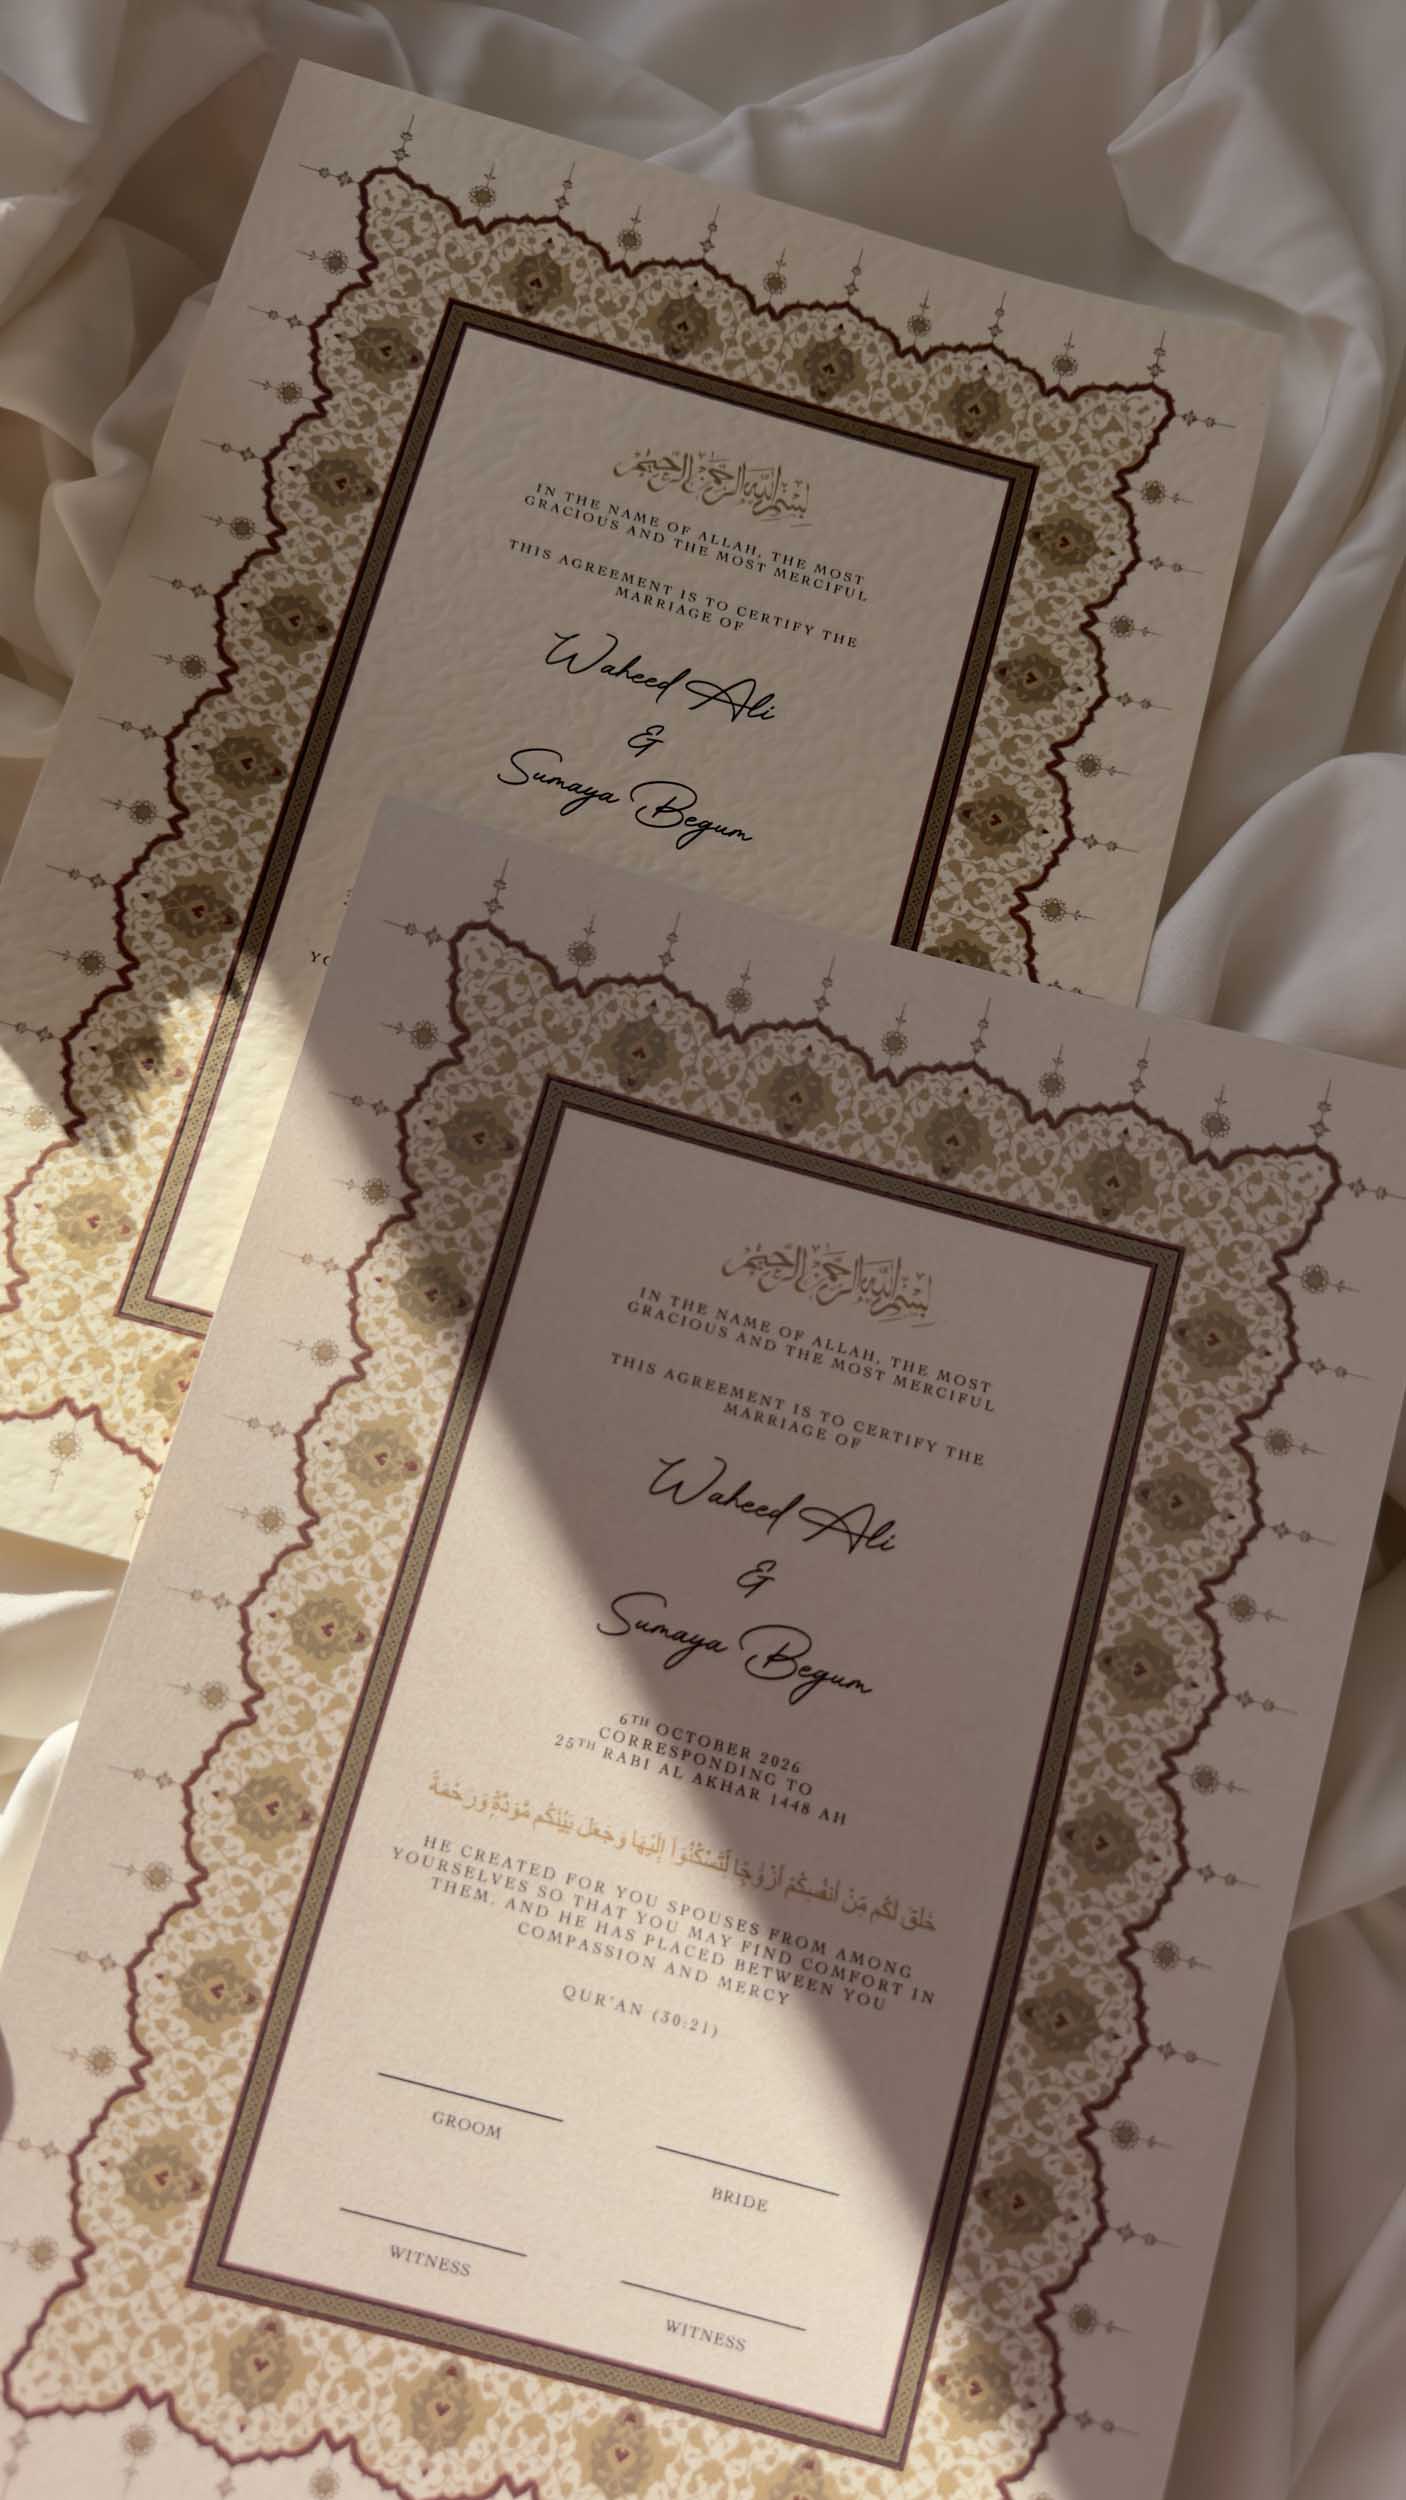 بسم الله الرحمن الرحيم
IN THE NAME OF ALLAH, THE MOST
GRACIOUS AND THE MOST MERCIFUL
THIS AGREEMENT IS TO CERTIFY THE
MARRIAGE OF
Waheed Ali
&
Sumaya Begum
YO
بسم الله الرحمن الرحيم
IN THE NAME OF ALLAH, THE MOST
GRACIOUS AND THE MOST MERCIFUL
THIS AGREEMENT IS TO CERTIFY THE
MARRIAGE OF
Waheed Ali
&
Sumaya Begum
6TH OCTOBER 2026
CORRESPONDING TO
25TH RABI AL AKHAR 1448 AH
خَلَقَ لَكُم مِّنْ أَنفُسِكُمْ أَزْوَٰجًا لِّتَسْكُنُوٓا۟ إِلَيْهَا وَجَعَلَ بَيْنَكُم مَّوَدَّةً وَرَحْمَةً
HE CREATED FOR YOU SPOUSES FROM AMONG
YOURSELVES SO THAT YOU MAY FIND COMFORT IN
THEM. AND HE HAS PLACED BETWEEN YOU
COMPASSION AND MERCY
QUR'AN (30:21)
GROOM
BRIDE
WITNESS
WITNESS